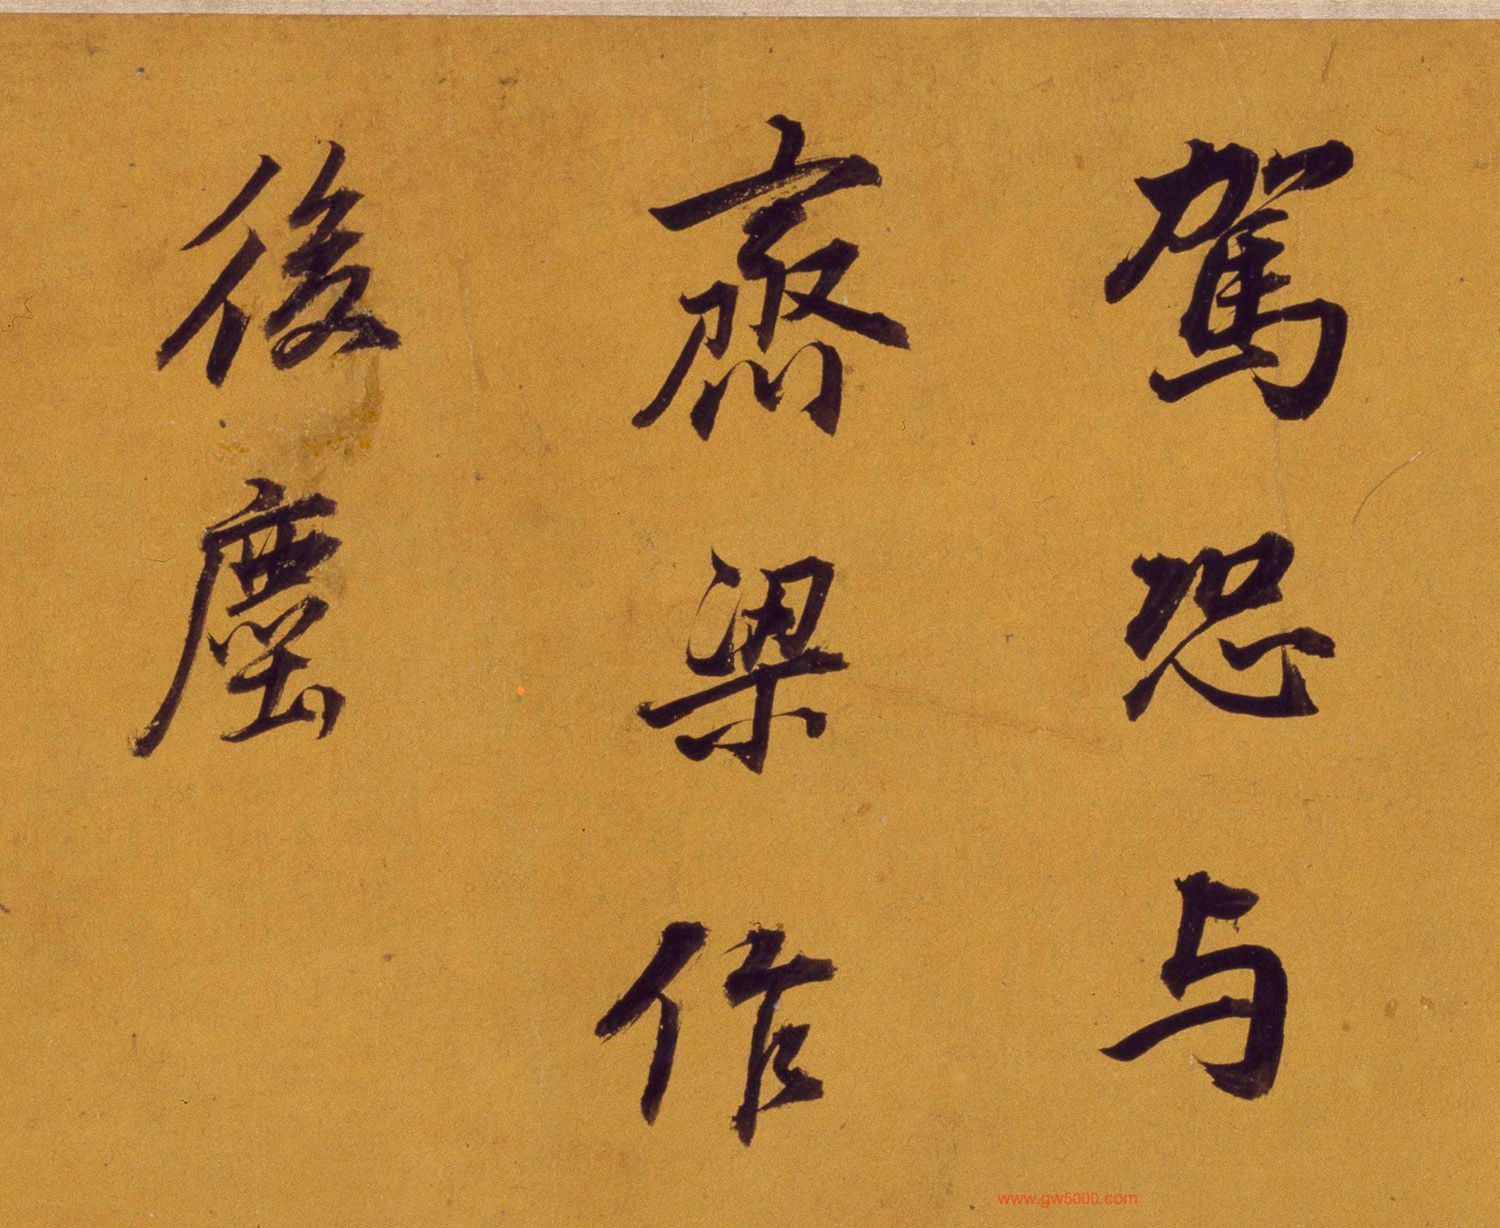 駕恐与
齋梁作
後塵
www.gw5000.com